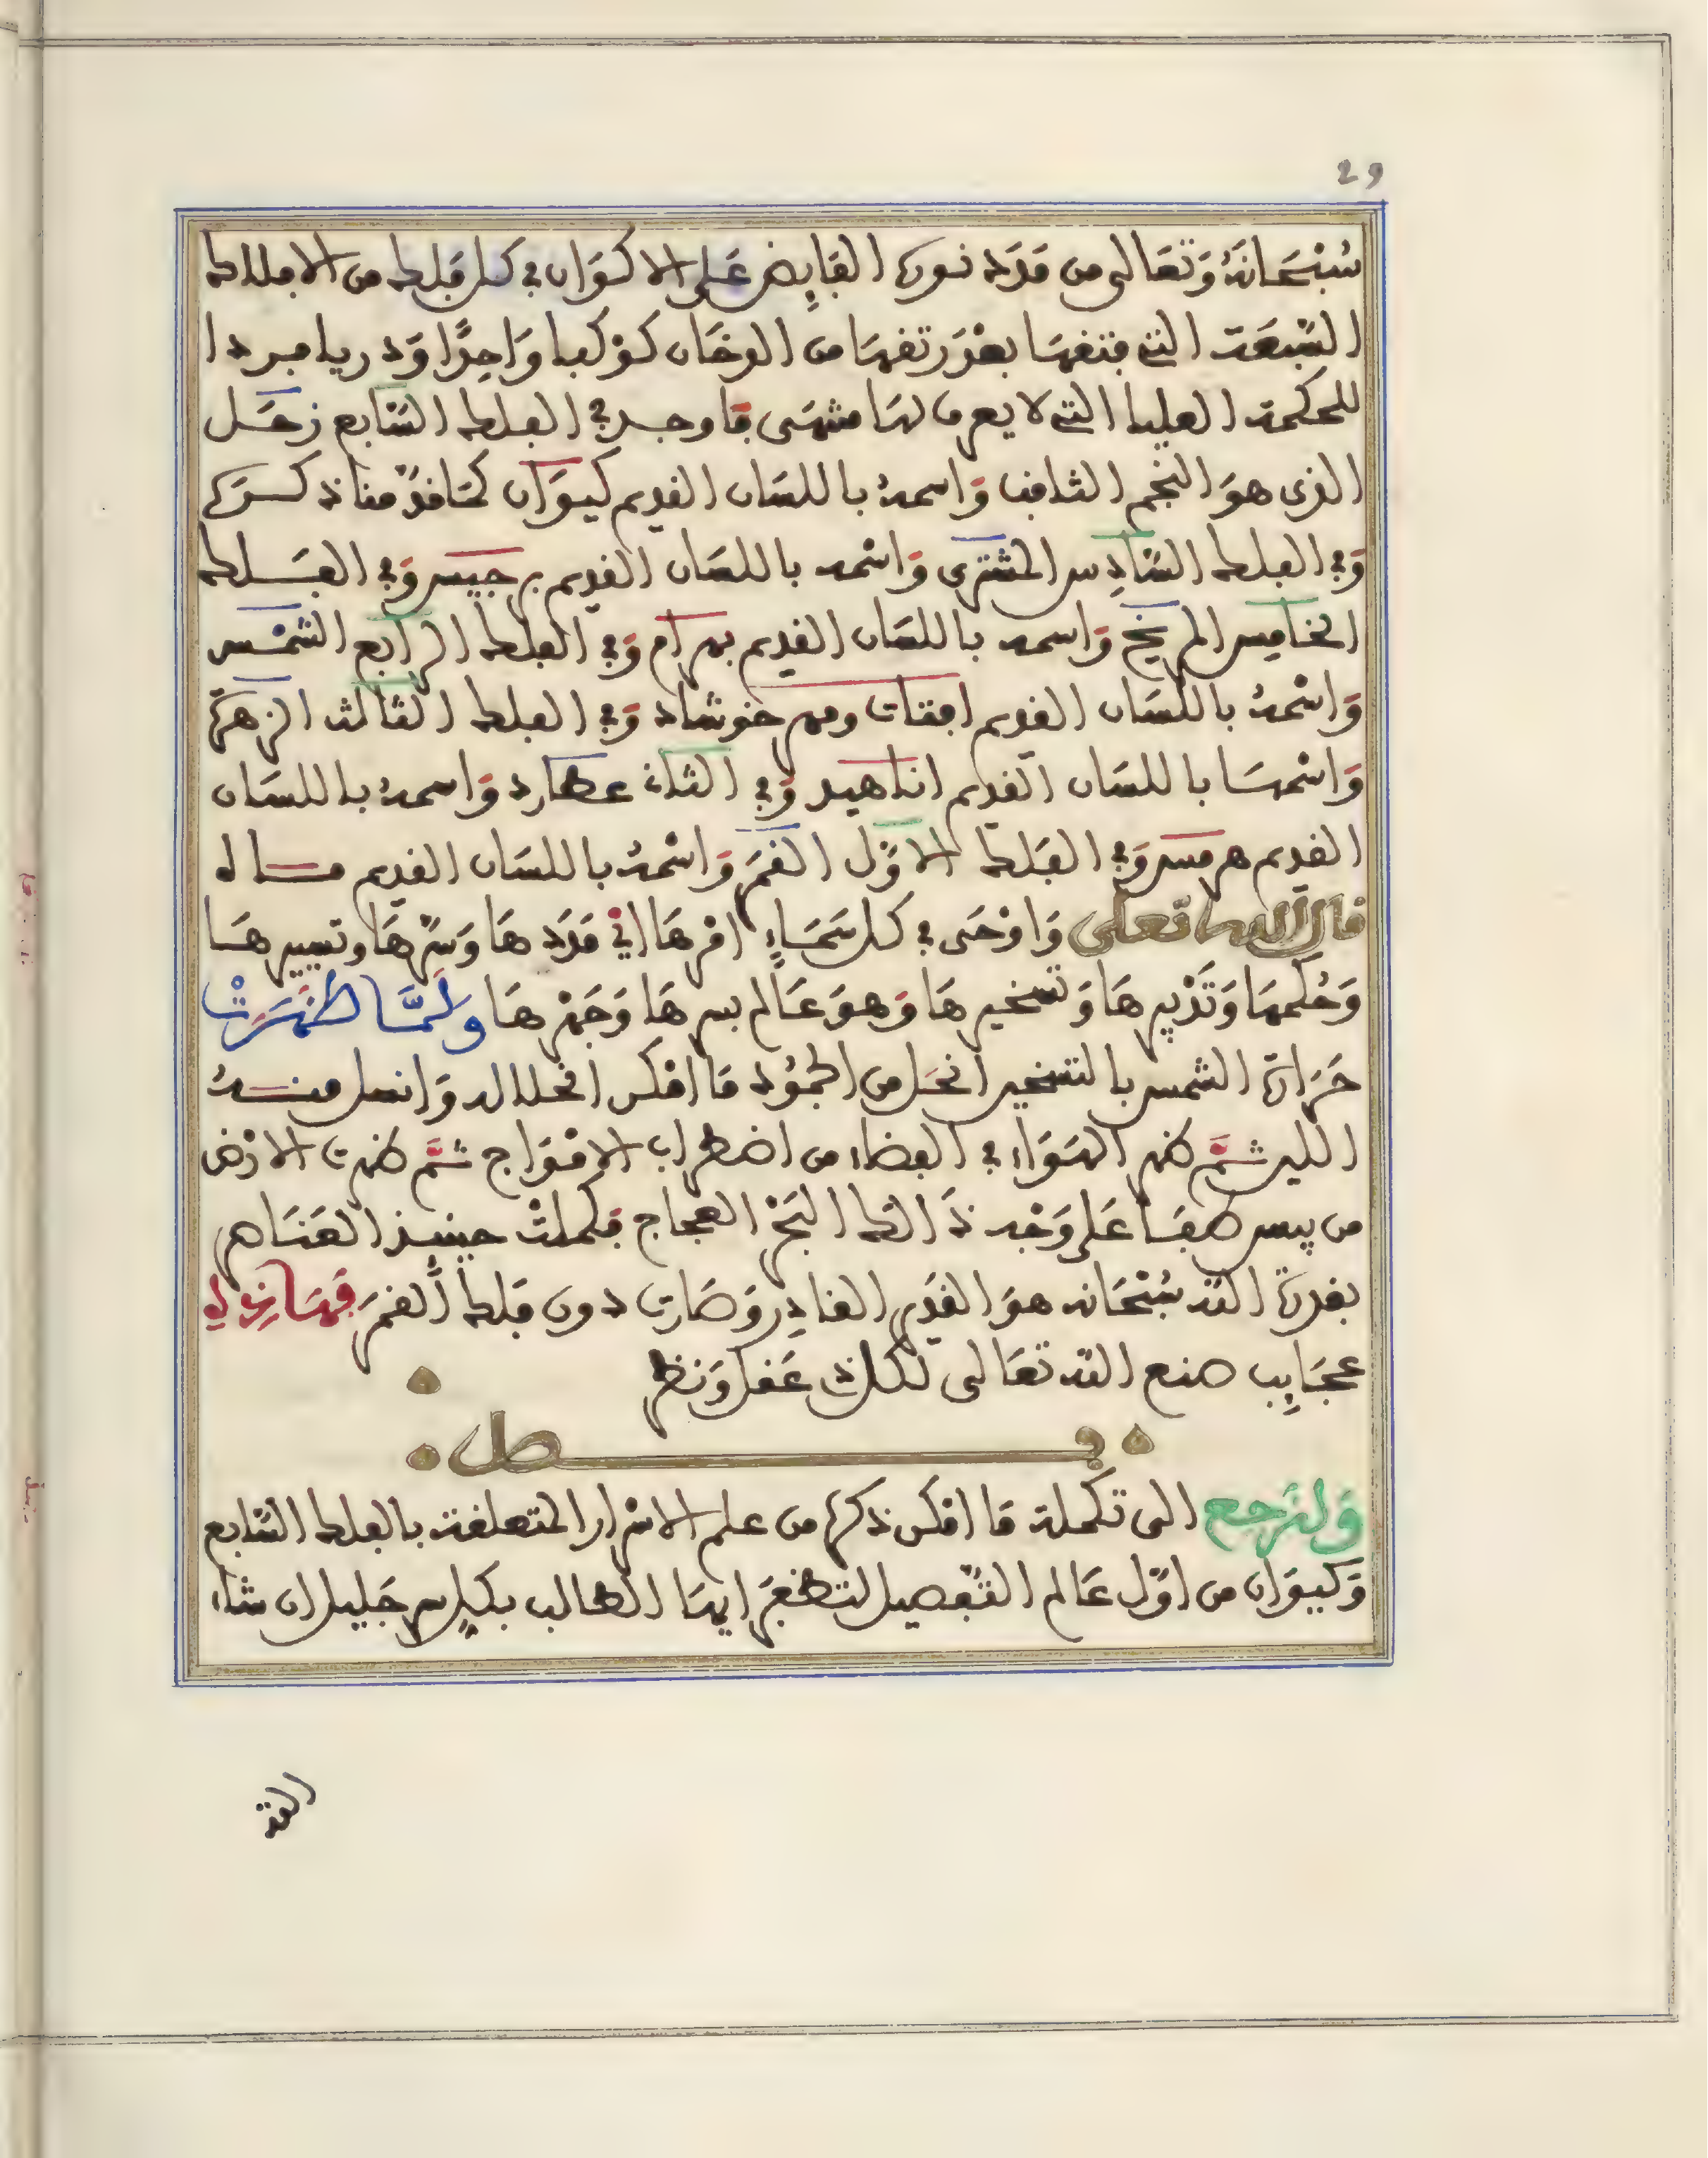 29
سُبْحَانَهُ وَتَعَالى من مَدَد نوره الفَايِض عَلى الاكوَان في كل فَلك من الافلاك
السَّبعَة التي فتقهَا بعْدَ رتقهَا من الدخَان كوْكبا وَاحِدًا وَدريا مبردا
للحكمة العليا التي لا يعرف لهَا منتهَى فاوجد في الفلك السَّابع زحَل
الذي هوَ النجم الثاقب وَاسمهُ باللسَان القديم كيوَان كمَا قدّمنا ذكرَه
وَفي الفلك السَّادِس المشترى وَاسْمه باللسَان القديم برجيس وَفي الفَلك
الخَامِس المريخ وَاسمه باللسَان القديم بهرَام وَفي الفلك الرَابع الشمْس
وَاسْمهُ باللسَان القديم افتات ومهر خوشاد وَفي الفلك الثالث الزهرَة
وَاسْمهَا باللسَان القديم اناهيد وَفي الثاني عطارد وَاسمهُ باللسَان
القديم هرمس وَفي الفَلك الاوّل القمَر وَاسْمهُ باللسَان القديم ماله
قال الله تعلى وَاوْحَى في كل سَمَاءٍ امْرهَا اي مَدَدهَا وَسِرّهَا وتسييرهَا
وَحُكمهَا وَتَدْبِيرهَا وَتسْخيرهَا وَهوَ عَالم بسرهَا وَجَهْرهَا وَلمَّا ظهَرَتْ
حَرَارة الشمس بالتسخير انحَل من الجمُود مَا امْكن انحلاله وَانعل منهُ
الليل ثمَّ ظهر الهَوَاء في الفضاء من اضطراب الامْوَاج ثمَّ ظهرت الارْض
من يبس طفَا عَلى وَجْه ذَالك البَحْر العجاج فكملتْ حينئذ العَنَاصر
بقدرة الله سُبْحَانه هوَ القَدِير القادِر وَصَارت دون فلك القمَر فهَا نزل لي
عجَايِب صنع الله تعَالى لكل ذي عَقل وَنظر
فصل
وَلنرجع الى تكملة مَا امْكن ذكره من علم الاسْرار المتعلقة بالفلك السَّابع
وَكيوَان من اوّل عَالم التفْصيل لتظفرَ ايهَا الطالب بكل سر جَليل ان شاء
الله